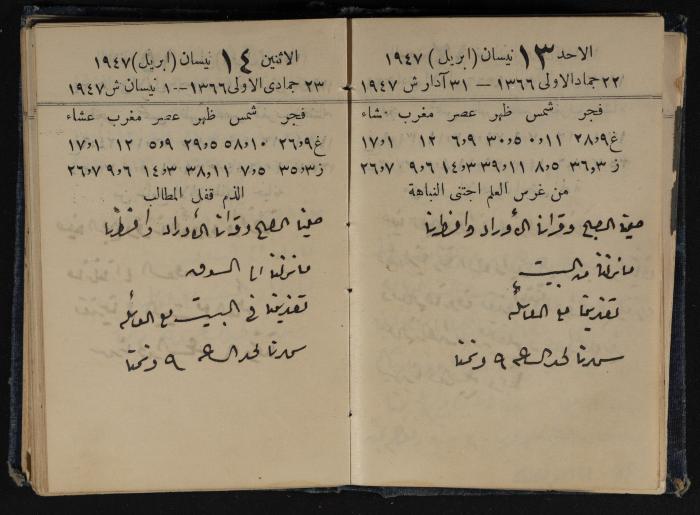 الاحد ١٣ نيسان (ابريل) ١٩٤٧
٢٢ جماد الاولى ١٣٦٦ — ٣١ آدار ش ١٩٤٧
فجر شمس ظهر عصر مغرب عشاء
غ ٩و٢٨ ١١و٠ ٥و٣٠ ٩و٦ ١٢ ١و١٧
ز ٣و٣٦ ٥و٨ ١١و٣٩ ٣و١٤ ٦و٩ ٧و٢٦
من غرس العلم اجتنى النباهة
صلينا الصبح وقرأنا الأوراد وافطرنا
مانزلنا من البيت
تغذينا مع العائلة
سهرنا لحد الساعه ٩ ونمنا
الاثنين ١٤ نيسان (ابريل) ١٩٤٧
٢٣ جمادى الاولى ١٣٦٦ — ١ نيسان ش ١٩٤٧
فجر شمس ظهر عصر مغرب عشاء
غ ٩و٢٦ ١٠و٥٨ ٥و٢٩ ٩و٥ ١٢ ١و١٧
ز ٣و٣٥ ٥و٧ ١١و٣٨ ٣و١٤ ٦و٩ ٧و٢٦
الذم قفل المطالب
صلينا الصبح وقرأنا الأوراد وافطرنا
مانزلنا الى السوق
تغذينا في البيت مع العائله
سهرنا لحد الساعه ٩ ونمنا